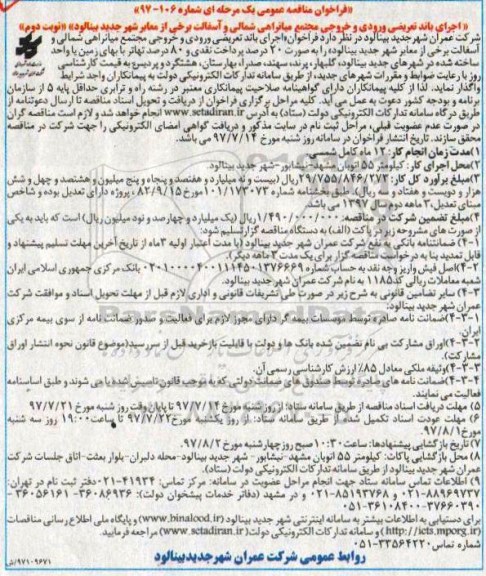 «فراخوان مناقصه عمومی یک مرحله ای شماره ۱۰۶-۹۷»
« اجرای باند تعریضی ورودی و خروجی مجتمع میاتراهی شمالی و آسفالت برخی از معابر شهر جدید بینالود» «نوبت دوم»
شرکت عمران شهرجدید بینالود در نظر دارد فراخوان«اجرای باند تعریضی ورودی و خروجی مجتمع میاتراهی شمالی و
آسفالت برخی از معابر شهر جدید بینالود» را به صورت ۲۰ درصد پرداخت نقدی و ۸۰ درصد تهاتر با بهای زمین یا واحد
ساخته شده در شهرهای جدید بینالود، گلبهار، پرند، سهند، صدرا، بهارستان، هشتگرد و پردیس« به قیمت کارشناسی
روز با رعایت ضوابط و مقررات شهرهای جدید، از طریق سامانه تدارکات الکترونیکی دولت به پیمانکاران واجد شرایط
واگذار نماید. لذا از کلیه پیمانکاران دارای گواهینامه صلاحیت پیمانکاری معتبر در رشته راه و ترابری حداقل پایه ۵ از سازمان
برنامه و بودجه کشور دعوت به عمل می آید. کلیه مراحل برگزاری فراخوان از دریافت و تحویل اسناد مناقصه تا ارسال دعوتنامه از
طریق درگاه سامانه تدارکات الکترونیکی دولت (ستاد) به آدرس www.setadiran.ir انجام خواهد شد و لازم است مناقصه گران
در صورت عدم عضویت قبلی، مراحل ثبت نام در سایت مذکور و دریافت گواهی امضای الکترونیکی را جهت شرکت در مناقصه
محقق سازند. تاریخ انتشار فراخوان در سامانه روز شنبه مورخ ۹۷/۷/۱۴ می باشد.
۱)مدت زمان انجام کار: ۱۲ ماه کامل شمسی
۲)محل اجرای کار: کیلومتر ۵۵ اتوبان مشهد-نیشابور-شهر جدید بینالود.
۳)مبلغ برآورد کل کار: ۲۹/۷۵۵/۸۴۶/۲۷۳ریال (بیست و نه میلیارد و هفتصد و پنجاه و پنج میلیون و هشتصد و چهل و شش
هزار و دویست و هفتاد و سه ریال). طبق بخشنامه شماره ۱۰۱/۱۷۳۰۷۳ مورخ ۸۲/۹/۱۵، پروژه دارای تعدیل بوده و شاخص
مبنای تعدیل، ۳ ماهه دوم سال ۱۳۹۷ می باشد.
۴)مبلغ تضمین شرکت در مناقصه: ۱/۴۹۰/۰۰۰/۰۰۰ ریال (یک میلیارد و چهارصد و نود میلیون ریال) است که باید به یکی
از صورت های مشروحه زیر در پاکت (الف) به دستگاه مناقصه گزار تسلیم شود:
۴-۱) ضمانتنامه بانکی به نفع شرکت عمران شهر جدید بینالود (با مدت اعتبار اولیه ۳ماه از تاریخ آخرین مهلت تسلیم پیشنهاد و
قابل تمدید بنا به درخواست مناقصه گزار برای یک مدت ۳ ماهه دیگر).
۴-۲)اصل فیش واریز وجه نقد به حساب شماره بانک مرکزی جمهوری اسلامی ایران
شعبه معاملات ریالی کد۱۱۸۵ به نام شرکت عمران شهر جدید بینالود.
۴-۳) سایر تضامین قانونی به شرح زیر در صورت طی تشریفات قانونی و اداری لازم قبل از مهلت تحویل اسناد و موافقت شرکت
عمران شهر جدید بینالود:
۴-۳-۱)ضمانت نامه صادره توسط موسسات بیمه گر دارای مجوز لازم برای فعالیت و صدور ضمانت نامه از سوی بیمه مرکزی
ایران.
۴-۳-۲)اوراق مشارکت بی نام تضمین شده بانک ها و دولت با قابلیت بازخرید قبل از سررسید(موضوع قانون نحوه انتشار اوراق
مشارکت).
۴-۳-۳)وثیقه ملکی معادل ۸۵٪ ارزش کارشناسی رسمی آن.
۴-۳-۴)ضمانت نامه های صادره توسط صندوق های ضمانت دولتی که به موجب قانون تاسیس شده یا می شوند و طبق اساسنامه
فعالیت می نمایند.
۵) مهلت دریافت اسناد مناقصه از طریق سامانه ستاد: از روز شنبه مورخ ۹۷/۷/۱۴ تا پایان وقت روز شنبه مورخ ۹۷/۷/۲۱
۶) مهلت عودت اسناد تکمیل شده از طریق سامانه ستاد: از روز یکشنبه مورخ ۹۷/۷/۲۲ تا ساعت ۱۹:۰۰ روز سه شنبه
مورخ ۹۷/۸/۱
۷)تاریخ بازگشایی پیشنهادها: ساعت ۱۰:۳۰ صبح روز چهارشنبه مورخ ۹۷/۸/۲
۸) محل بازگشایی پاکات: کیلومتر ۵۵ اتوبان مشهد-نیشابور- شهر جدید بینالود-محله دلبران-بلوار بعثت-اتاق جلسات شرکت
عمران شهر جدید بینالود از طریق سامانه تدارکات الکترونیکی دولت (ستاد).
۹) اطلاعات تماس سامانه ستاد جهت انجام مراحل عضویت در سامانه: مرکز تماس: ۴۱۹۳۴-۰۲۱ دفتر ثبت نام در تهران:
۸۸۹۶۹۷۳۷-۰۲۱ و ۸۵۱۹۳۷۶۸-۰۲۱ و در مشهد (دفاتر خدمات پیشخوان دولت): ۳۶۰۸۶۹۳۶- ۳۶۰۵۶۱۶۱-
۳۷۶۶۰۳۹۰-۳۶۱۰۸۴۰۰-۰۵۱
برای دستیابی به اطلاعات بیشتر به سامانه اینترنتی شهر جدید بینالود (www.binalood.ir) و پایگاه ملی اطلاع رسانی مناقصات
(http://iets.mporg.ir) و سامانه تدارکات الکترونیکی دولت (www.setadiran.ir) مراجعه فرمایید.
شماره تماس: ۳۳۵۶۴۲۲۰-۰۵۱
روابط عمومی شرکت عمران شهر جدید بینالود
۹۷۱۰۹۶۷۱/ش